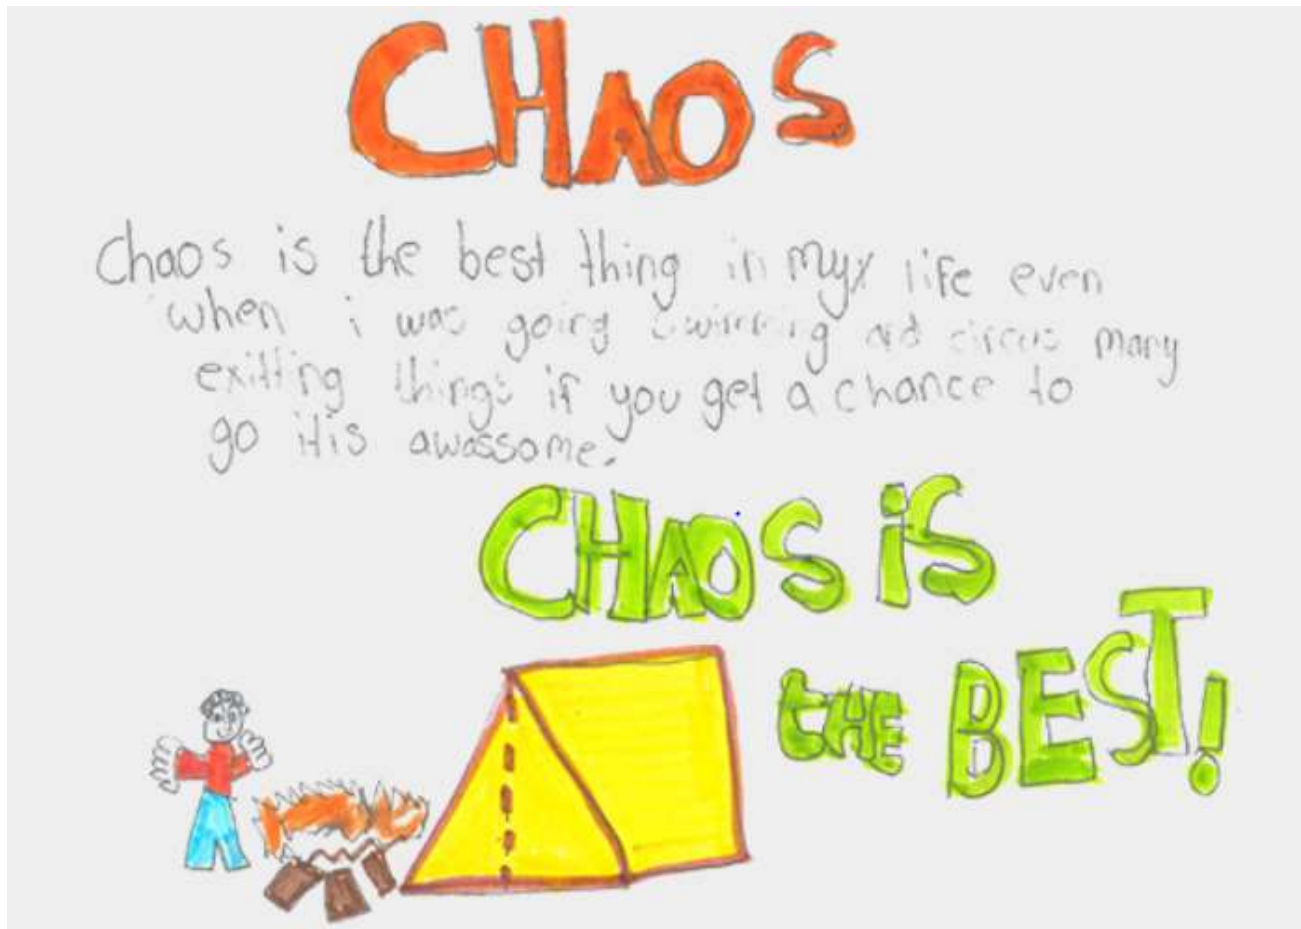 CHAOS
Chaos is the best thing in myx life even
when i was going swimming and circus many
exitting things if you get a chance to
go itis awassome.
CHAOS iS
tHE BEST!